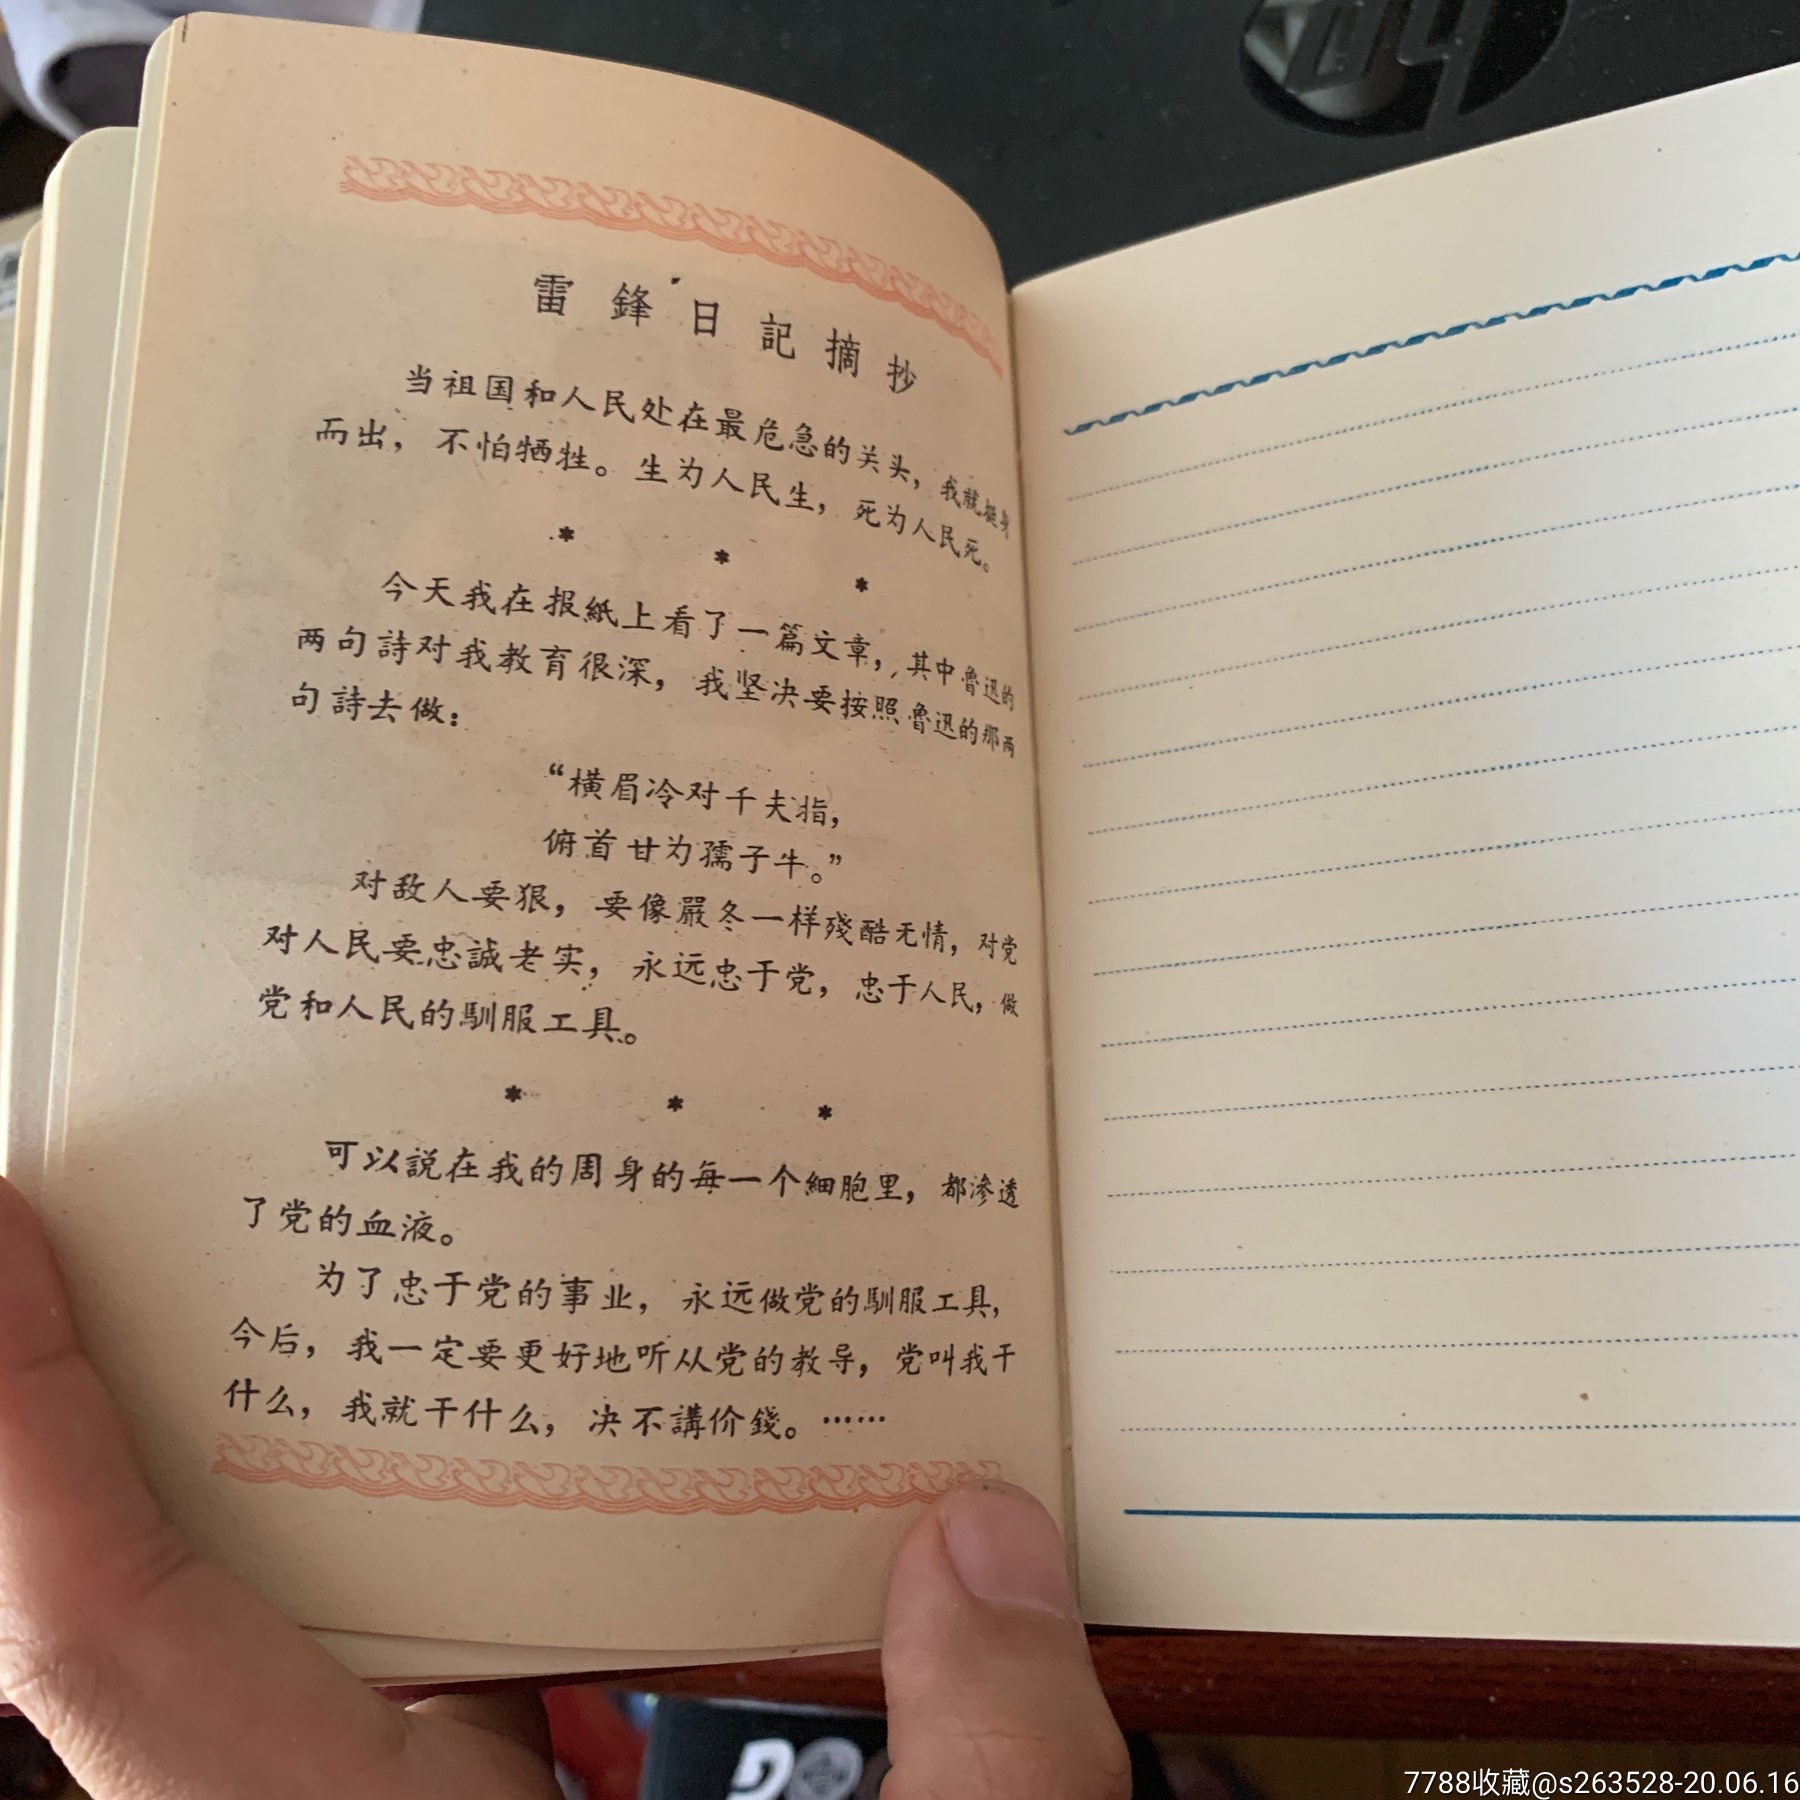 雷鋒日記摘抄
当祖国和人民处在最危急的关头，我就挺身
而出，不怕牺牲。生为人民生，死为人民死。
* * *
今天我在报紙上看了一篇文章，其中魯迅的
两句詩对我教育很深，我坚决要按照魯迅的那两
句詩去做：
“横眉冷对千夫指，
俯首甘为孺子牛。”
对敌人要狠，要像嚴冬一样殘酷无情，对党
对人民要忠誠老实，永远忠于党，忠于人民，做
党和人民的馴服工具。
* * *
可以説在我的周身的每一个細胞里，都渗透
了党的血液。
为了忠于党的事业，永远做党的馴服工具，
今后，我一定要更好地听从党的教导，党叫我干
什么，我就干什么，决不講价錢。……
hp
7788收藏@s263528-20.06.16